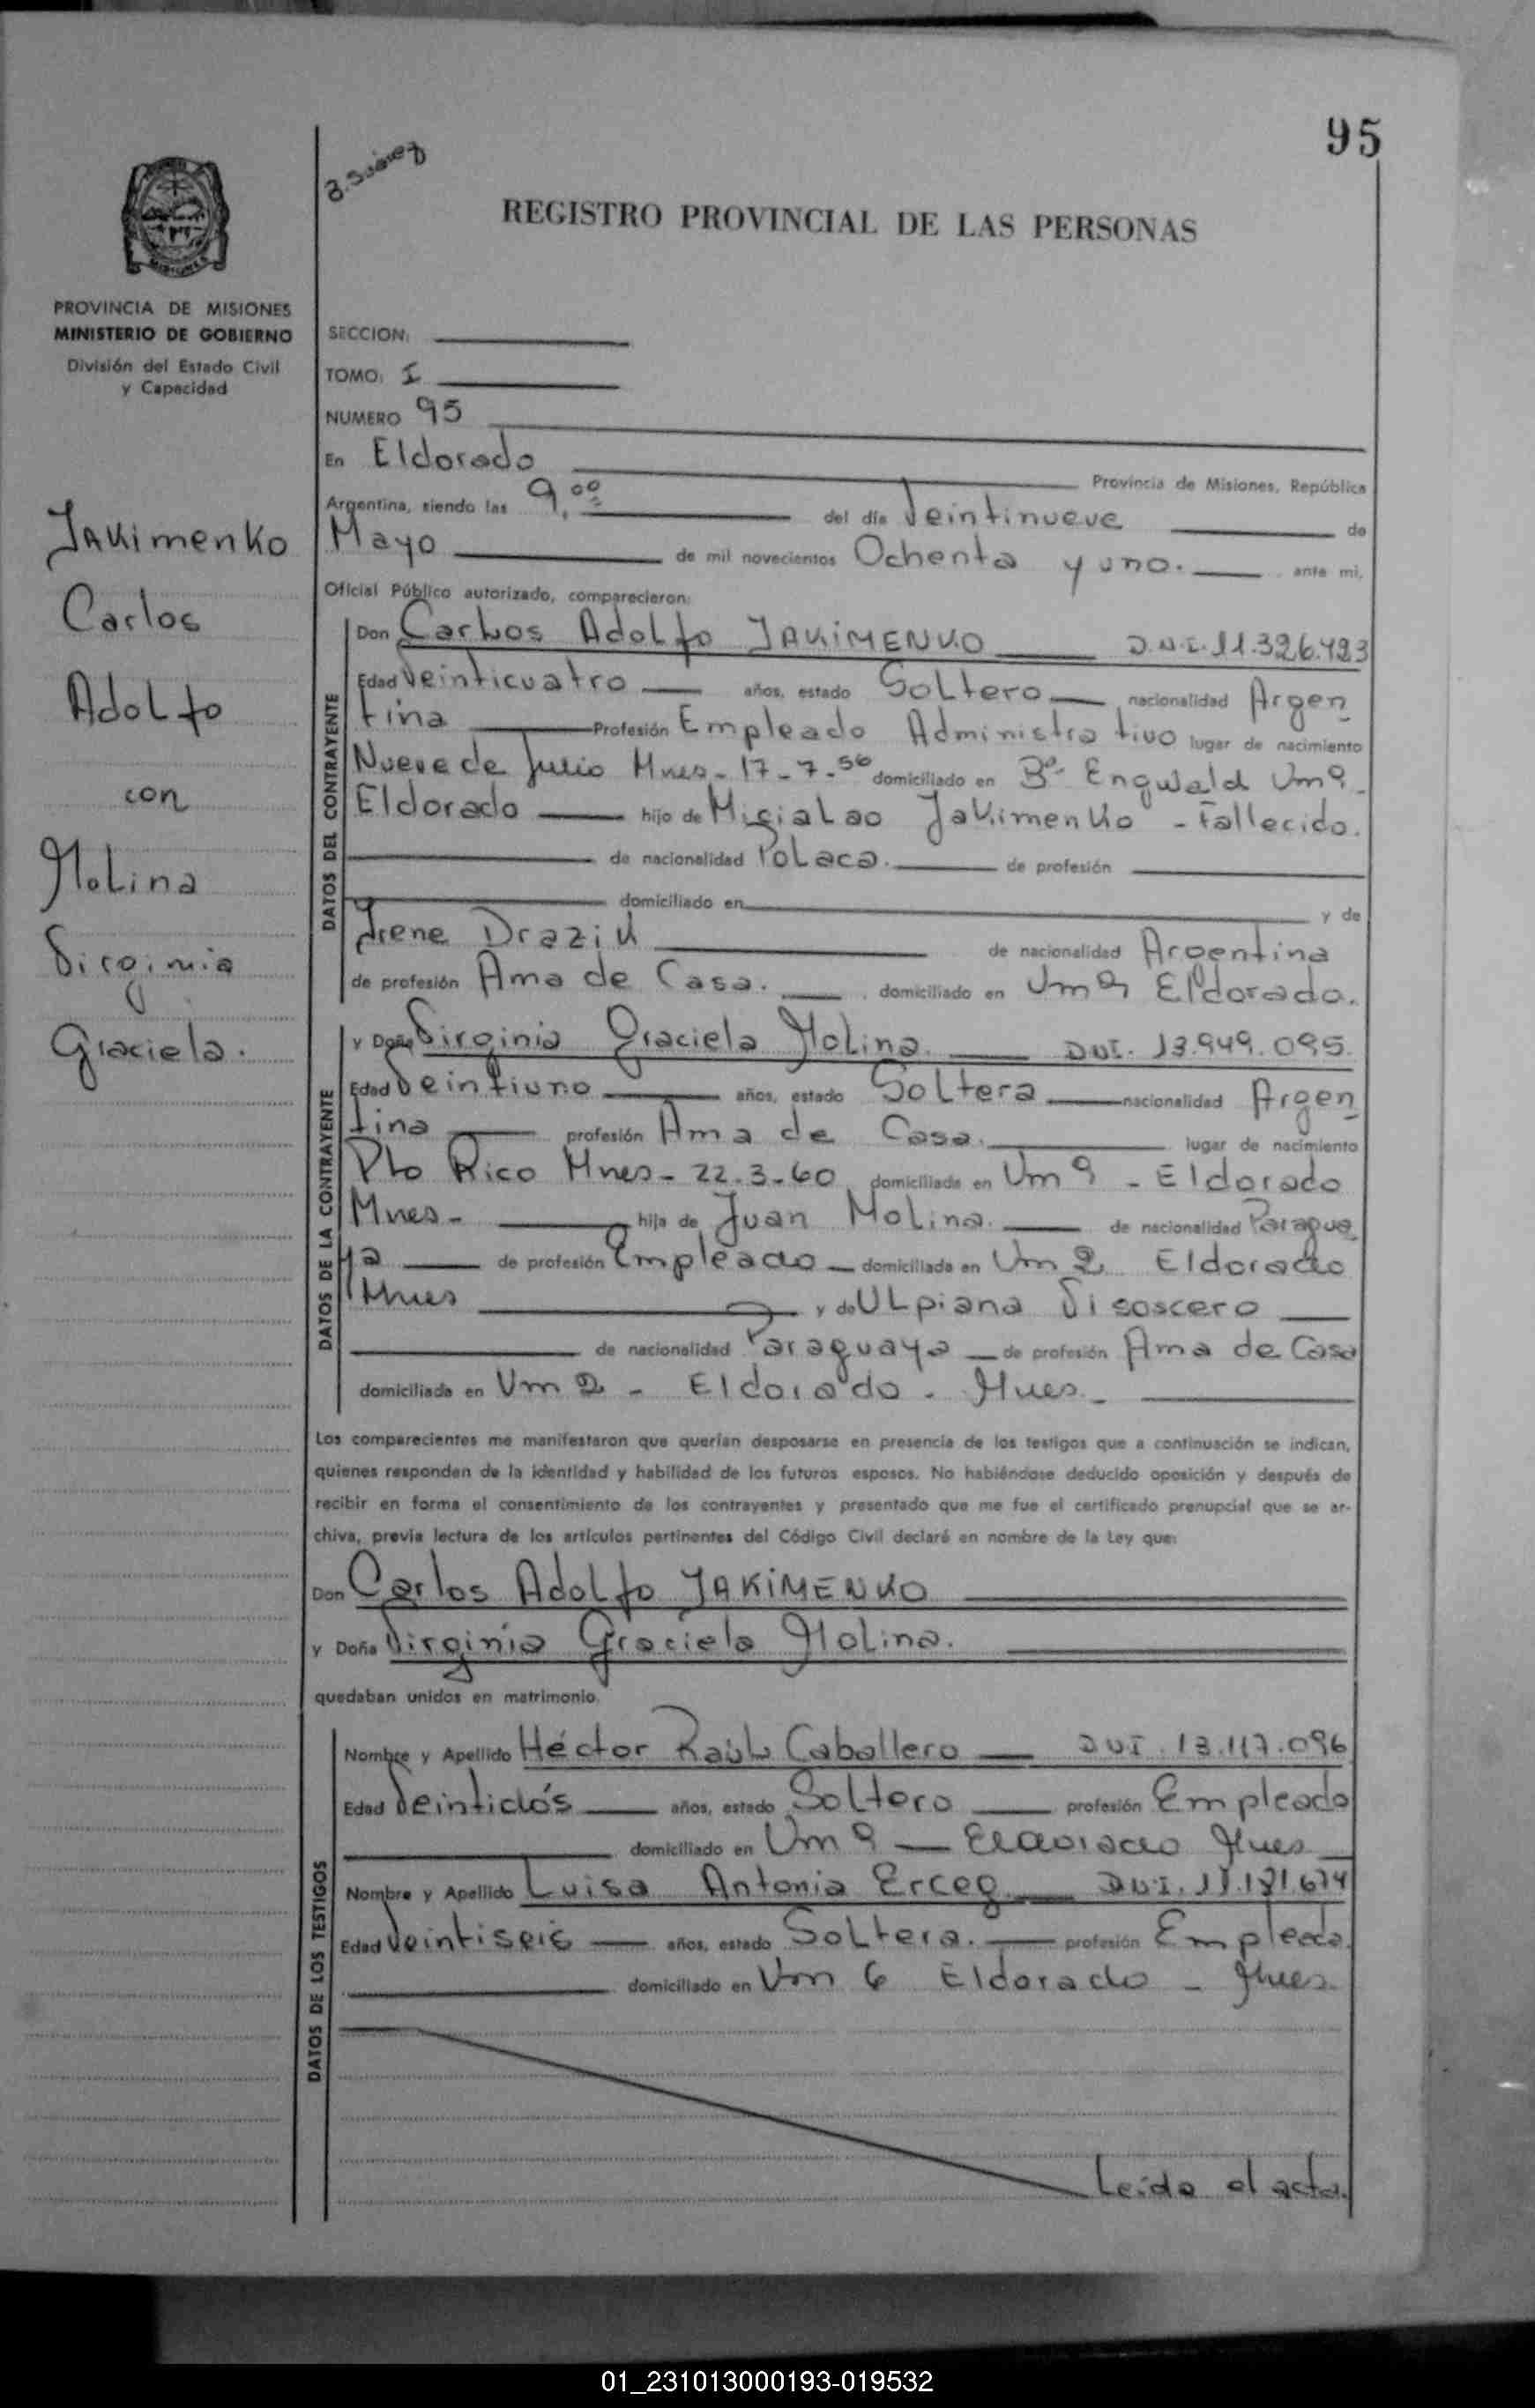 95
REGISTRO PROVINCIAL DE LAS PERSONAS
PROVINCIA DE MISIONES
MINISTERIO DE GOBIERNO
División del Estado Civil
y Capacidad
Jakimenko
Carlos
Adolfo
con
Molina
Virginia
Graciela.
SECCION:
TOMO: I
NUMERO 95
En Eldorado Provincia de Misiones, República
Argentina, siendo las 9,00 del día Veintinueve de
Mayo de mil novecientos Ochenta y uno. ante mi,
Oficial Público autorizado, comparecieron:
DATOS DEL CONTRAYENTE
Don Carlos Adolfo JAKIMENKO D.N.I. 11.326.423
Edad Veinticuatro años, estado Soltero nacionalidad Argen
tina Profesión Empleado Administrativo lugar de nacimiento
Nueve de Julio Mnes - 17-7-56 domiciliado en Bº Enguald Km 9
Eldorado hijo de Jakimenko - Fallecido.
de nacionalidad Polaca. de profesión
domiciliado en y de
Irene Drazik de nacionalidad Argentina
de profesión Ama de Casa. domiciliado en Km 9 Eldorado.
DATOS DE LA CONTRAYENTE
y Doña Virginia Graciela Molina. DNI. 13.949.095.
Edad Veintiuno años, estado Soltera nacionalidad Argen
tina profesión Ama de Casa. lugar de nacimiento
Pto Rico Mnes - 22-3-60 domiciliada en Km 9 - Eldorado
Mnes - hija de Juan Molina. de nacionalidad Paragua
ya de profesión Empleado domiciliado en Km 2 Eldorado
Mnes y de Ulpiana
de nacionalidad Paraguaya de profesión Ama de Casa
domiciliada en Km 2 - Eldorado - Mnes -
Los comparecientes me manifestaron que querían desposarse en presencia de los testigos que a continuación se indican,
quienes responden de la identidad y habilidad de los futuros esposos. No habiéndose deducido oposición y después de
recibir en forma el consentimiento de los contrayentes y presentado que me fue el certificado prenupcial que se ar-
chiva, previa lectura de los artículos pertinentes del Código Civil declaré en nombre de la Ley que:
Don Carlos Adolfo JAKIMENKO
y Doña Virginia Graciela Molina.
quedaban unidos en matrimonio.
DATOS DE LOS TESTIGOS
Nombre y Apellido Héctor Raúl Caballero DNI. 13.117.096
Edad Veintidós años, estado Soltero profesión Empleado
domiciliado en Km 9 - Eldorado Mnes
Nombre y Apellido Luisa Antonia Erceg DNI. 11.181.674
Edad Veintiseis años, estado Soltera. profesión Empleada.
domiciliado en Km 6 Eldorado - Mnes.
Leída el acta.
01_231013000193-019532